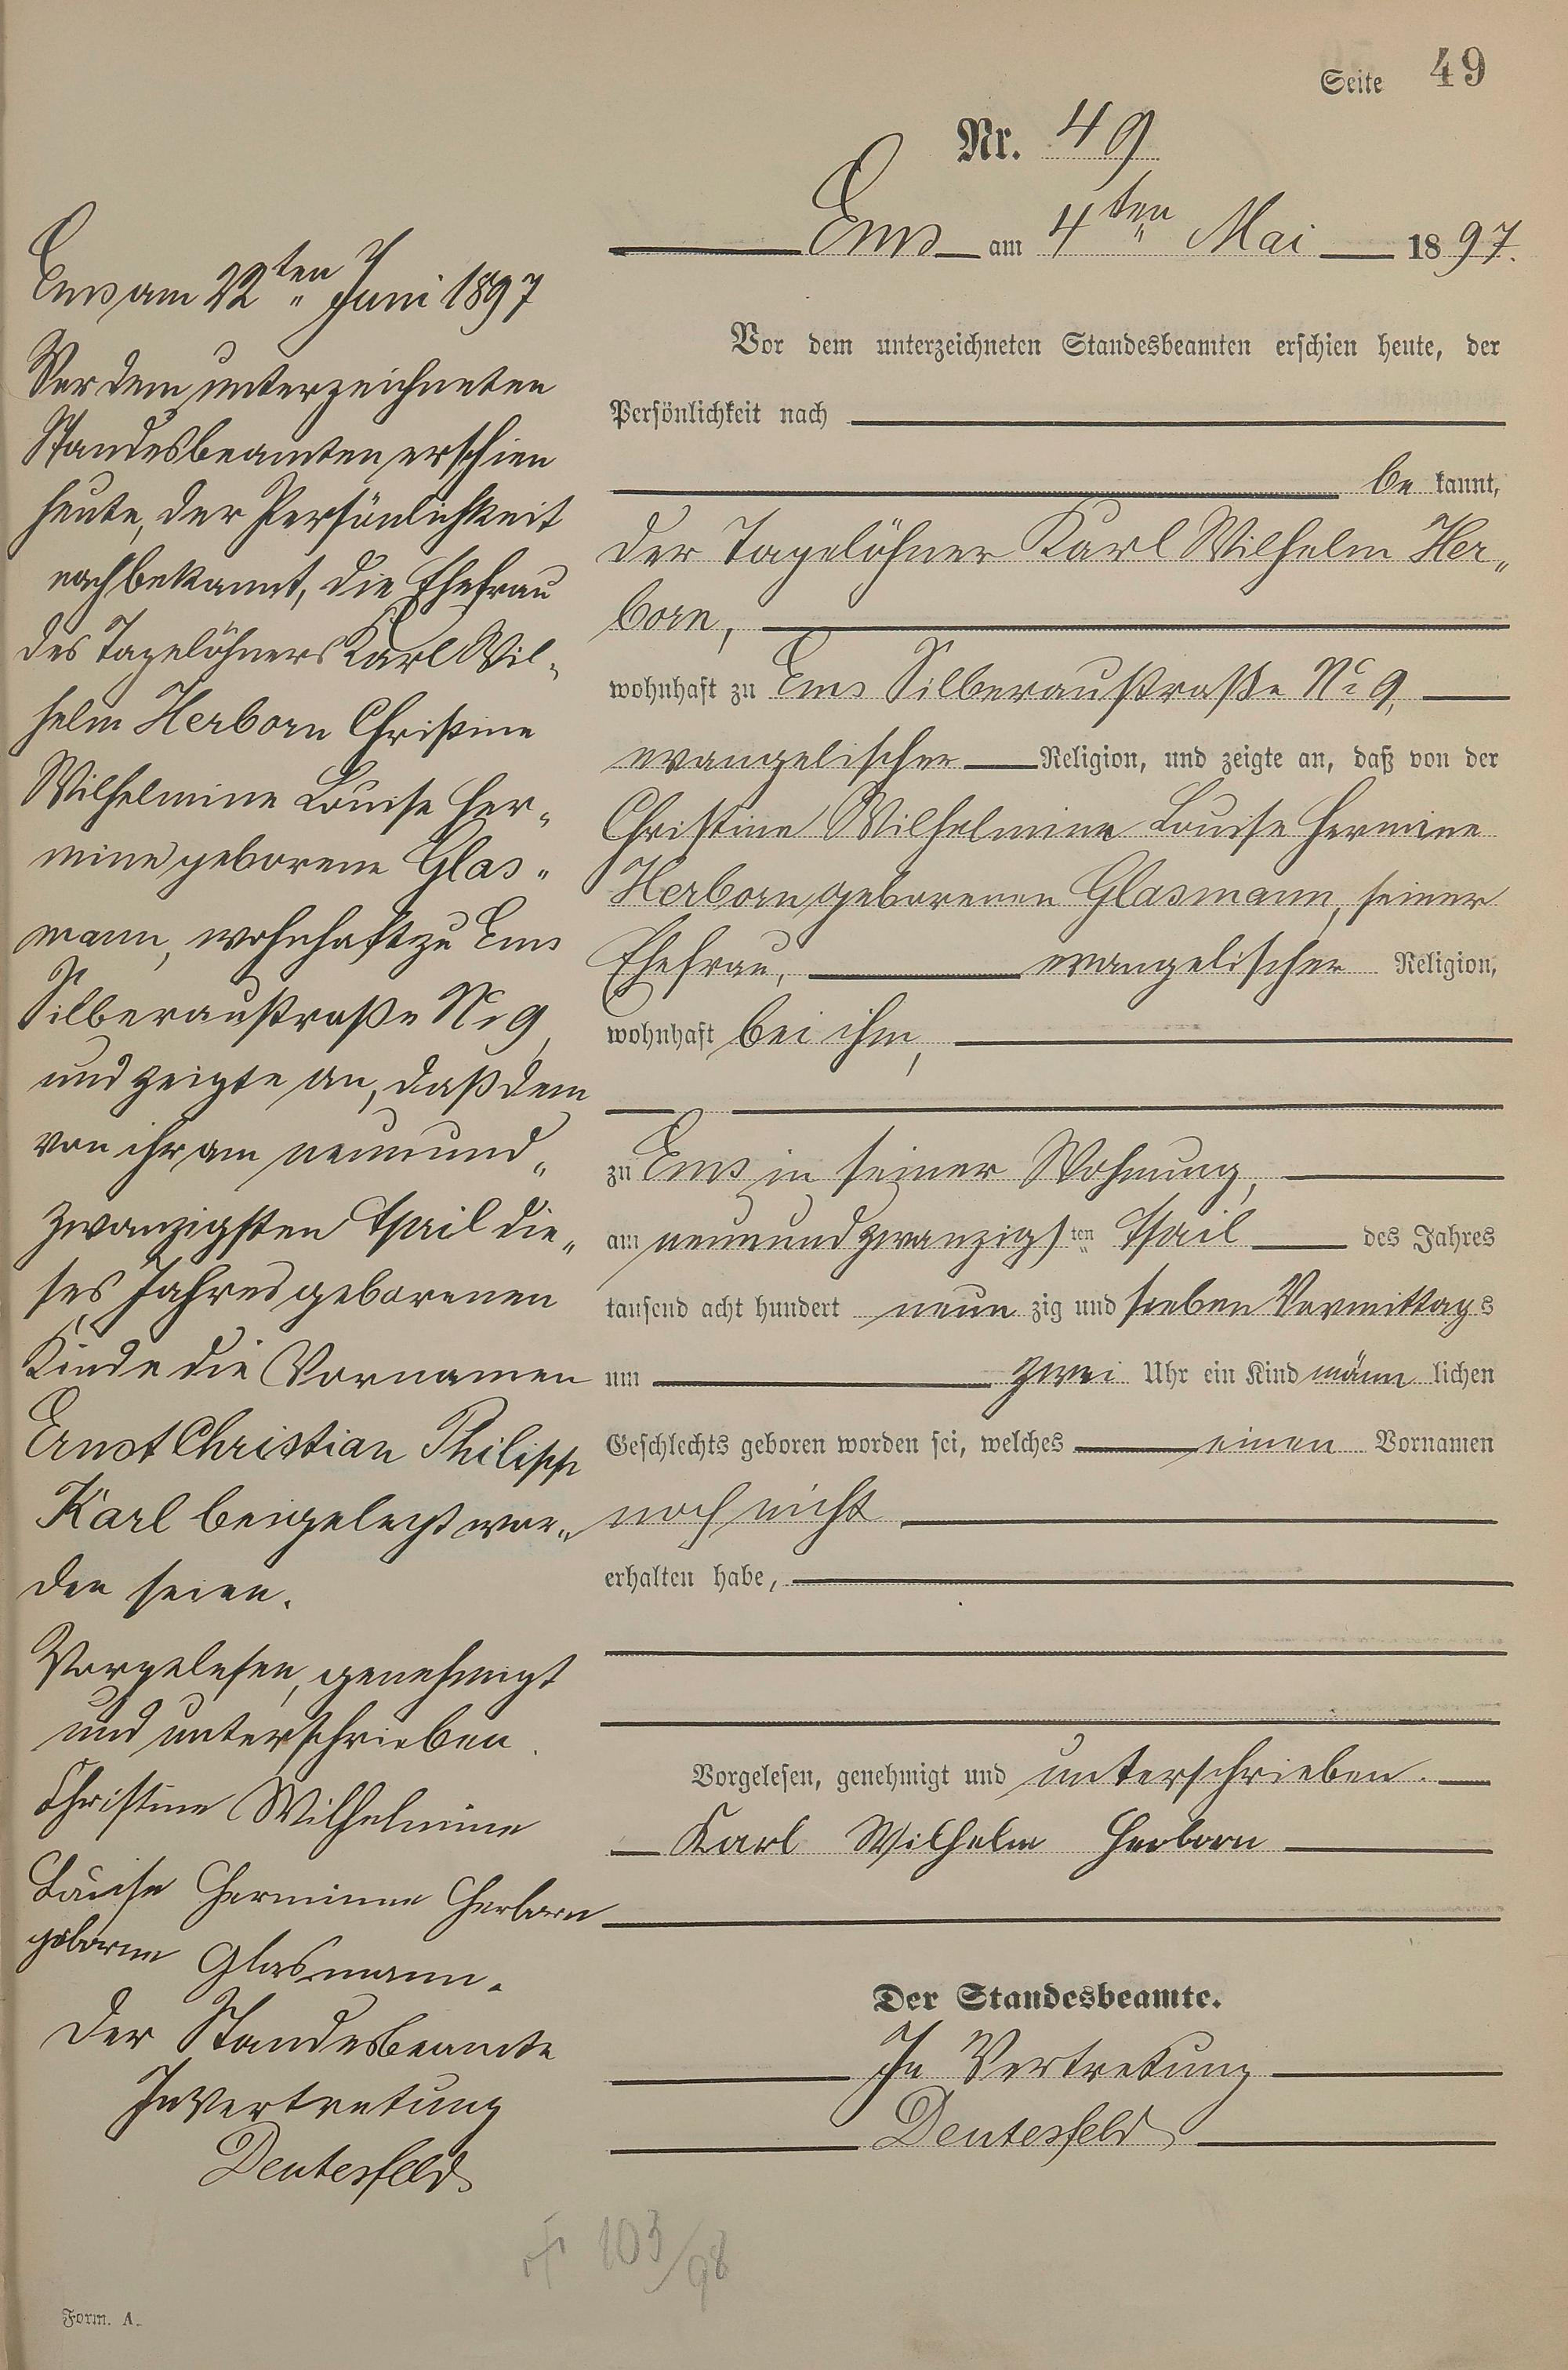 Seite 49
Nr. 49
Ems am 4ten Mai 1897.
Vor dem unterzeichneten Standesbeamten erschien heute, der
Persönlichkeit nach
be kannt,
der Tagelöhner Karl Wilhelm Her„
born,
wohnhaft zu Ems Silberaustraße No 9,
evangelischer Religion, und zeigte an, daß von der
Christine Wilhelmine Louise Hermine
Herborn geborenen Glasmann, seiner
Ehefrau, evangelischer Religion,
wohnhaft bei ihm,
zu Ems in seiner Wohnung,
am neunundzwanzigsten April des Jahres
tausend acht hundert neun zig und sieben Vormittags
um zwei Uhr ein Kind männ lichen
Geschlechts geboren worden sei, welches einen Vornamen
noch nicht
erhalten habe,
Vorgelesen, genehmigt und unterschrieben.
Karl Wilhelm Herborn
Der Standesbeamte.
In Vertretung
Deutesfeld
Ems am 22ten Juni 1897
Vor dem unterzeichneten
Standesbeamten erschien
heute, der Persönlichkeit
nach bekannt, die Ehefrau
des Tagelöhners Karl Wil„
helm Herborn Christine
Wilhelmine Louise Her„
mine geborene Glas„
mann, wohnhaft zu Ems
Silberaustraße No 9,
und zeigte an, daß dem
von ihr am neunund„
zwanzigsten April die„
ses Jahres geborenen
Kinde die Vornamen
Ernst Christian Philipp
Karl beigelegt wor„
den seien.
Vorgelesen, genehmigt
und unterschrieben.
Christine Wilhelmine
Louise Hermine Herborn
geborne Glasmann.
Der Standesbeamte
In Vertretung
Deutesfeld
† 103/98
Form. A.